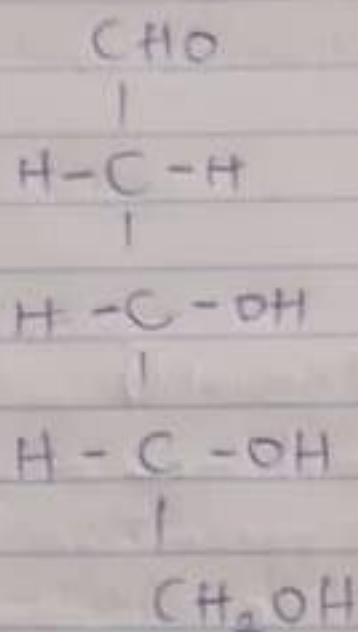 CHO
|
H-C-H
|
H-C-OH
|
H-C-OH
|
CH₂OH